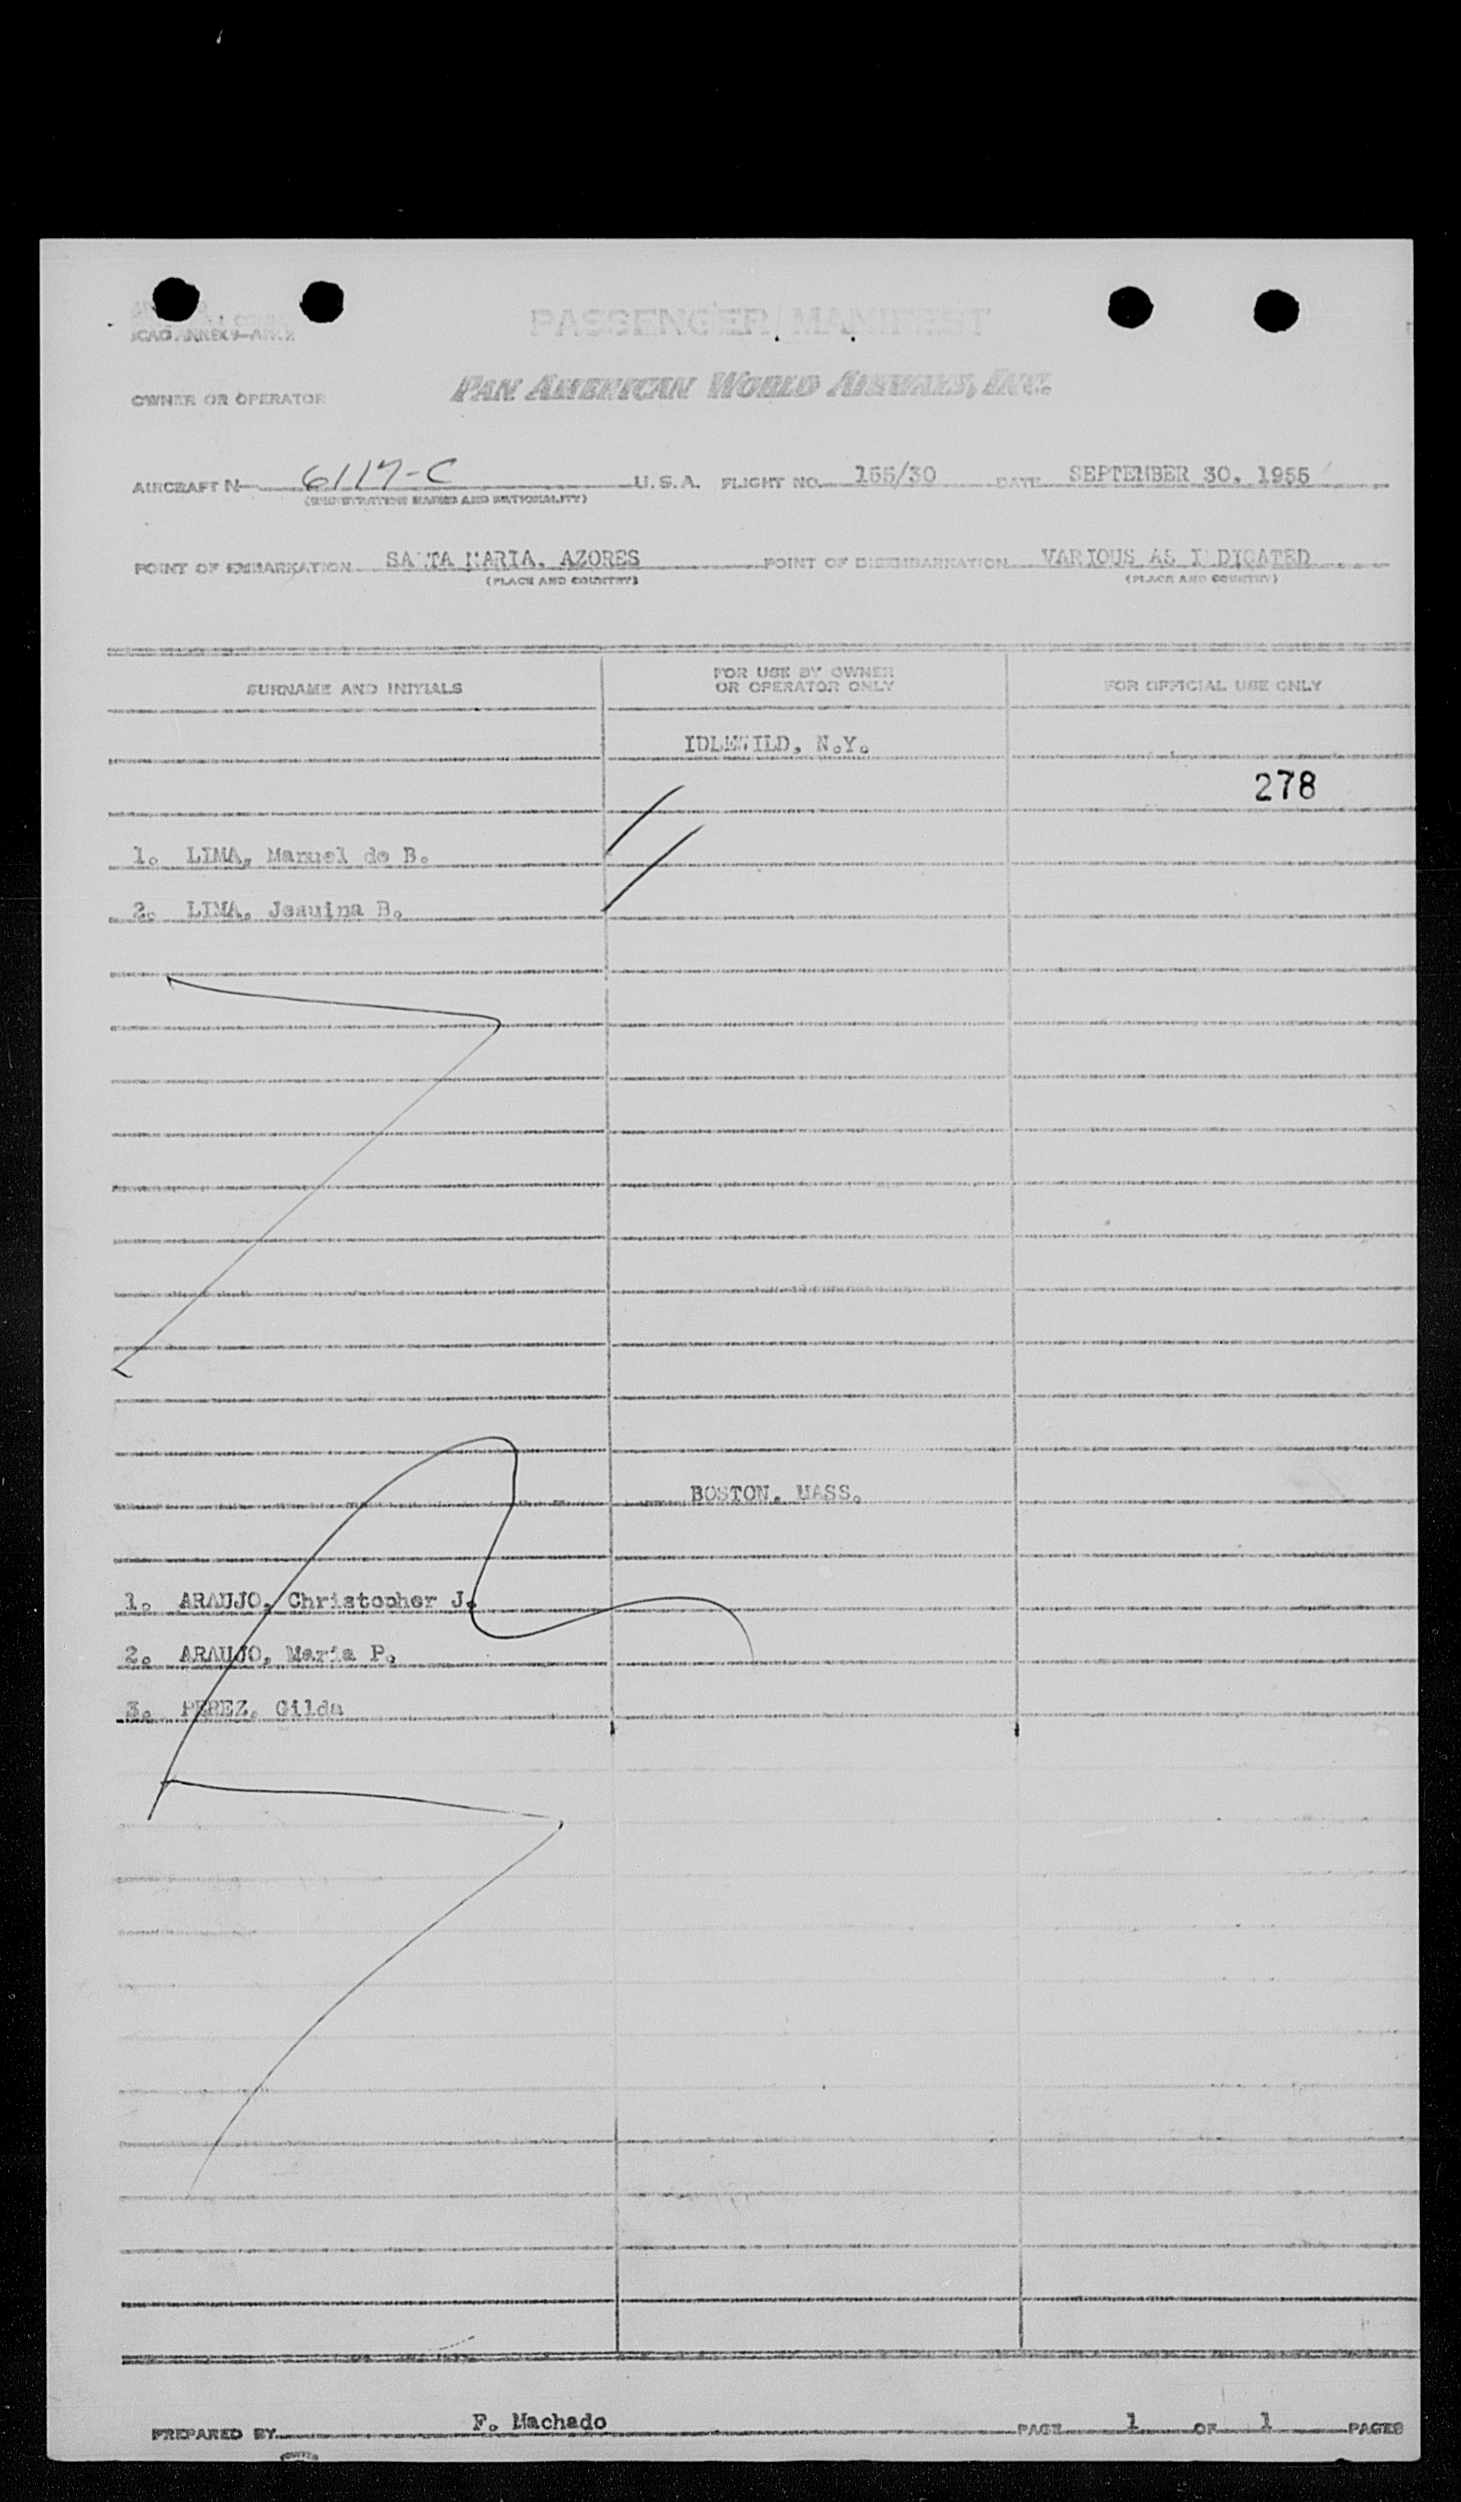 PASSENGER MANIFEST
ICAO ANNEX 9—AP. 2
OWNER OR OPERATOR PAN AMERICAN WORLD AIRWAYS, INC.
AIRCRAFT N 6117-C U.S.A. FLIGHT NO. 155/30 DATE SEPTEMBER 30, 1955
(REGISTRATION MARKS AND NATIONALITY)
POINT OF EMBARKATION SANTA MARIA, AZORES POINT OF DISEMBARKATION VARIOUS AS INDICATED
(PLACE AND COUNTRY) (PLACE AND COUNTRY)
SURNAME AND INITIALS FOR USE BY OWNER OR OPERATOR ONLY FOR OFFICIAL USE ONLY
IDLEWILD, N.Y.
278
1. LIMA, Manuel de B.
2. LIMA, Jesuina B.
BOSTON, MASS.
1. ARAUJO, Christopher J.
2. ARAUJO, Maria P.
3. PEREZ, Gilda
PREPARED BY F. Machado PAGE 1 OF 1 PAGES